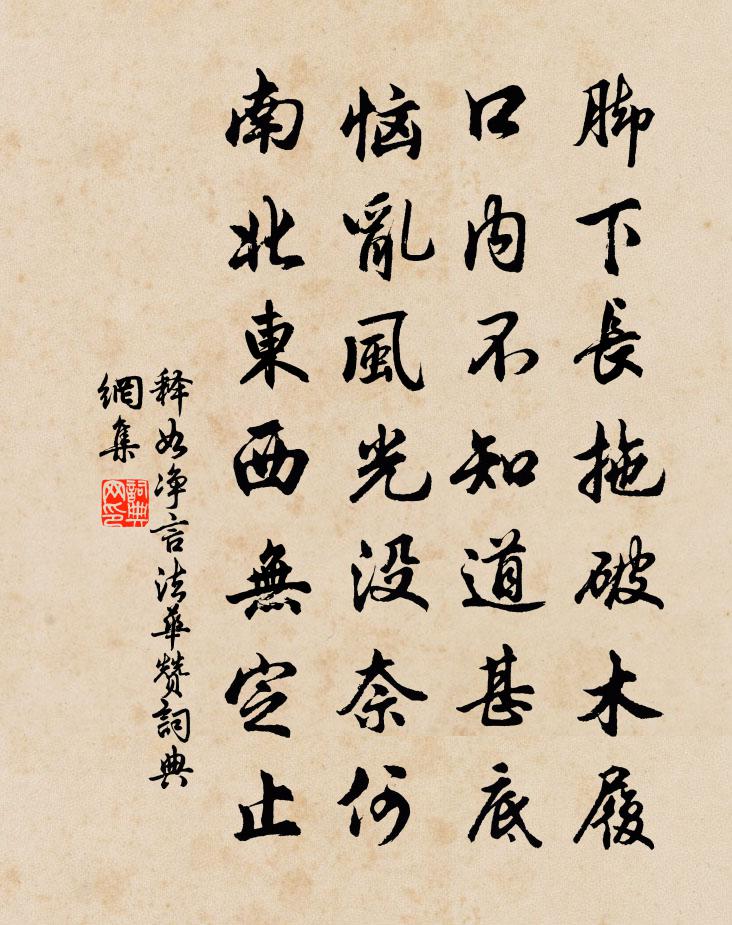 脚下長拖破木履
口内不知道甚底
恼亂風光没奈何
南北東西無定止
释如净言法華赞詞典
網集
詞典
网印